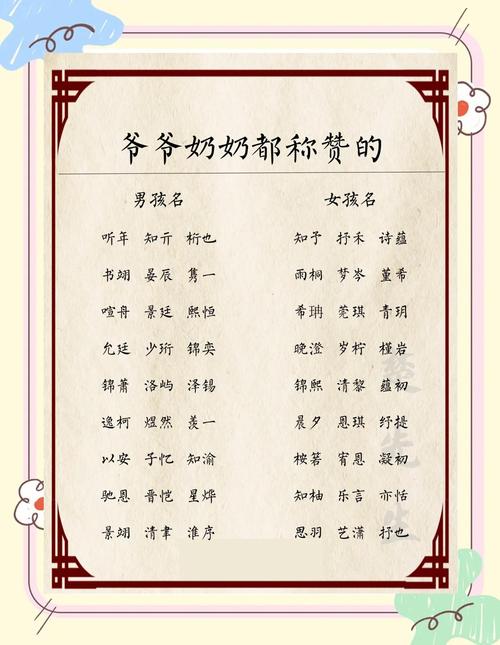 爷爷奶奶都称赞的
男孩名 女孩名
听年 知亓 桁也 知予 抒禾 诗蕴
书翊 晏辰 隽一 雨桐 梦岑 堇希
喧舟 景廷 熙恒 希珃 莞琪 青玥
允廷 少珩 锦奕 晚澄 岁柠 槿岩
锦萧 洛屿 泽锡 锦熙 清黎 蕴初
逸柯 煜然 羡一 晨夕 恩琪 纾提
以安 子忆 知渝 桉箬 宥恩 凝初
驰恩 晋恺 星烨 知柚 乐言 亦恬
景翊 清聿 淮序 思羽 艺潇 抒也